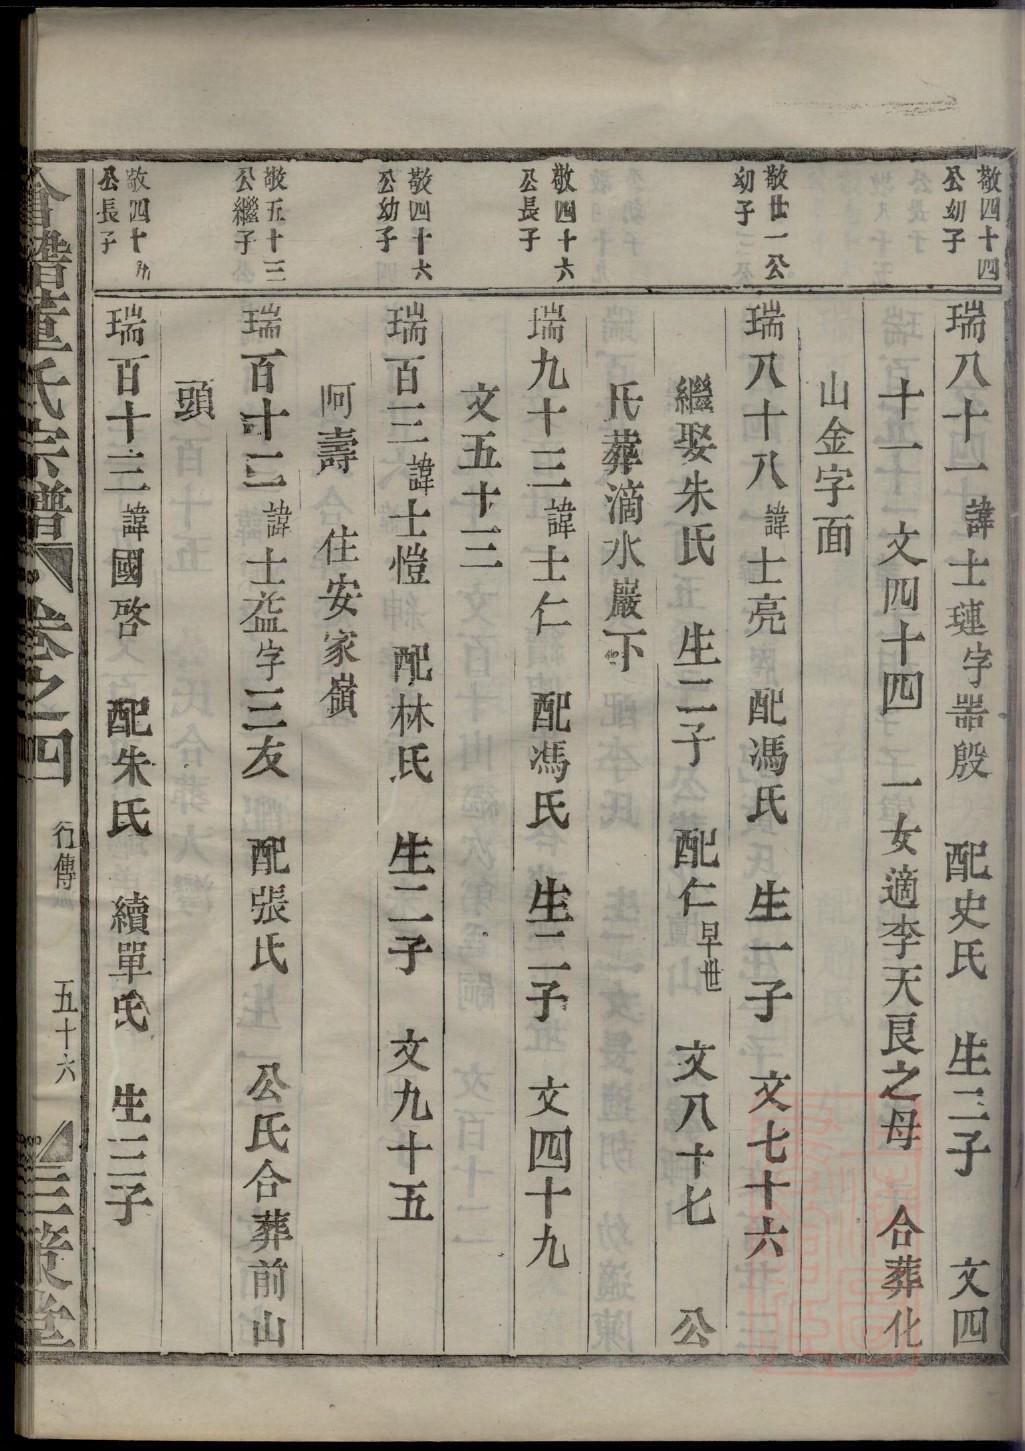 敬四十四
公幼子
瑞八十一諱士璉字噐殷　配史氏　生二子　文四
十一　文四十四　一女適李天良之母　合葬化
山金字面
敬廿一公
幼子
瑞八十八諱士亮　配馮氏　生一子　文七十六
繼娶朱氏　生二子　配仁早世　文八十七　公
氏葬滴水巖下
敬四十六
公長子
瑞九十三諱士仁　配馮氏　生二子　文四十九
文五十三
敬四十六
公幼子
瑞百三諱士愷　配林氏　生二子　文九十五
阿壽　住安家嶺
敬五十三
公繼子
瑞百十二諱士益字三友　配張氏　公氏合葬前山
頭
敬四十九
公長子
瑞百十三諱國啓　配朱氏　續單氏　生三子
會譜董氏宗譜　卷之四　行傳　五十六　三策堂